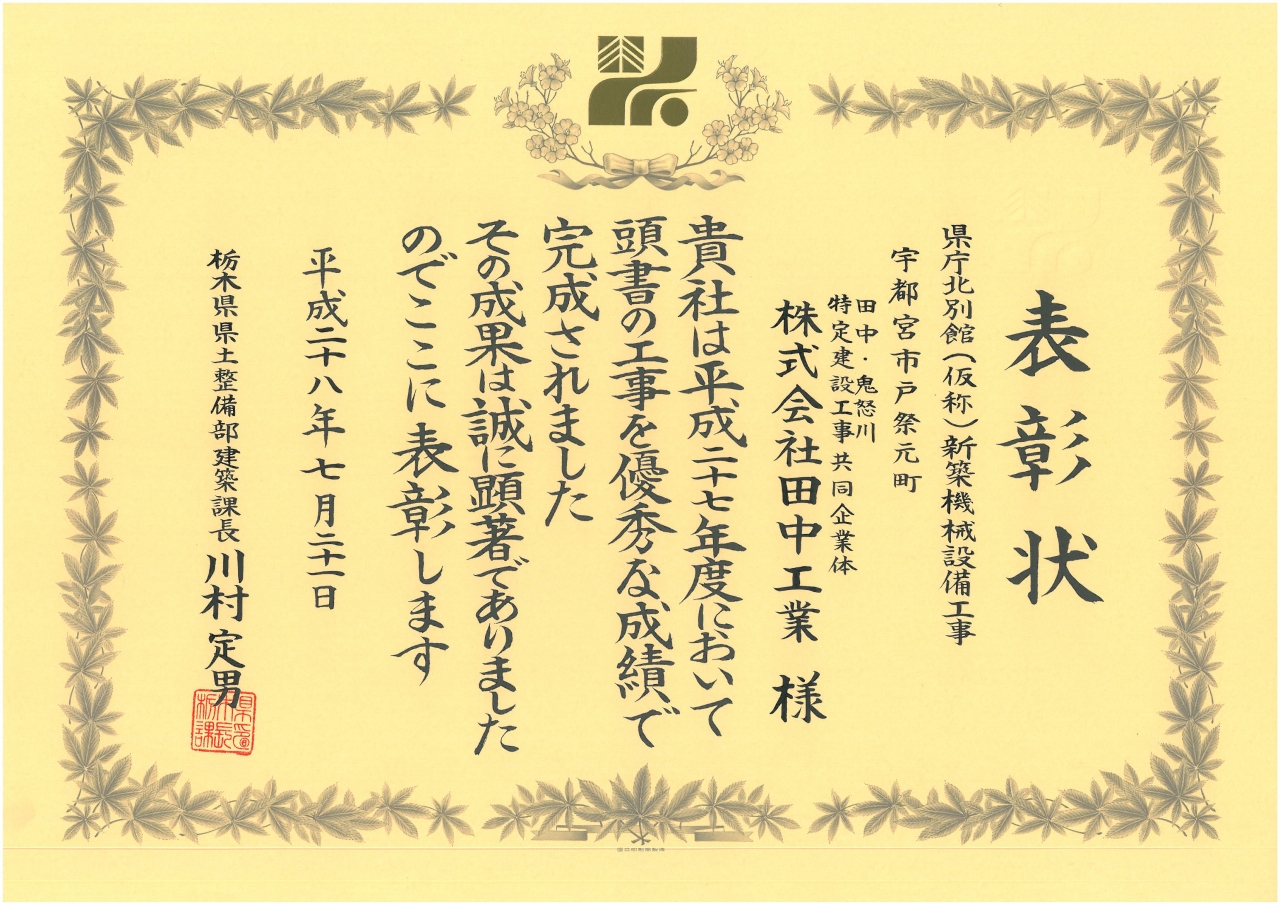 表彰状
県庁北別館(仮称)新築機械設備工事
宇都宮市戸祭元町
田中・鬼怒川
特定建設工事共同企業体
株式会社田中工業 様
貴社は平成二十七年度において
頭書の工事を優秀な成績で
完成されました
その成果は誠に顕著でありました
のでここに表彰します
平成二十八年七月二十一日
栃木県県土整備部建築課長 川村定男